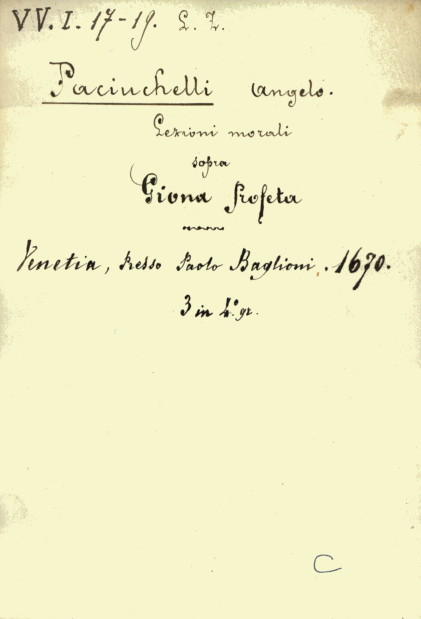 VV. I. 17-19. L. Z.
Paciuchelli Angelo.
Lezioni morali
sopra
Giona Profeta
Venetia, presso Paolo Baglioni. 1670.
3 in 4.° gr.
C